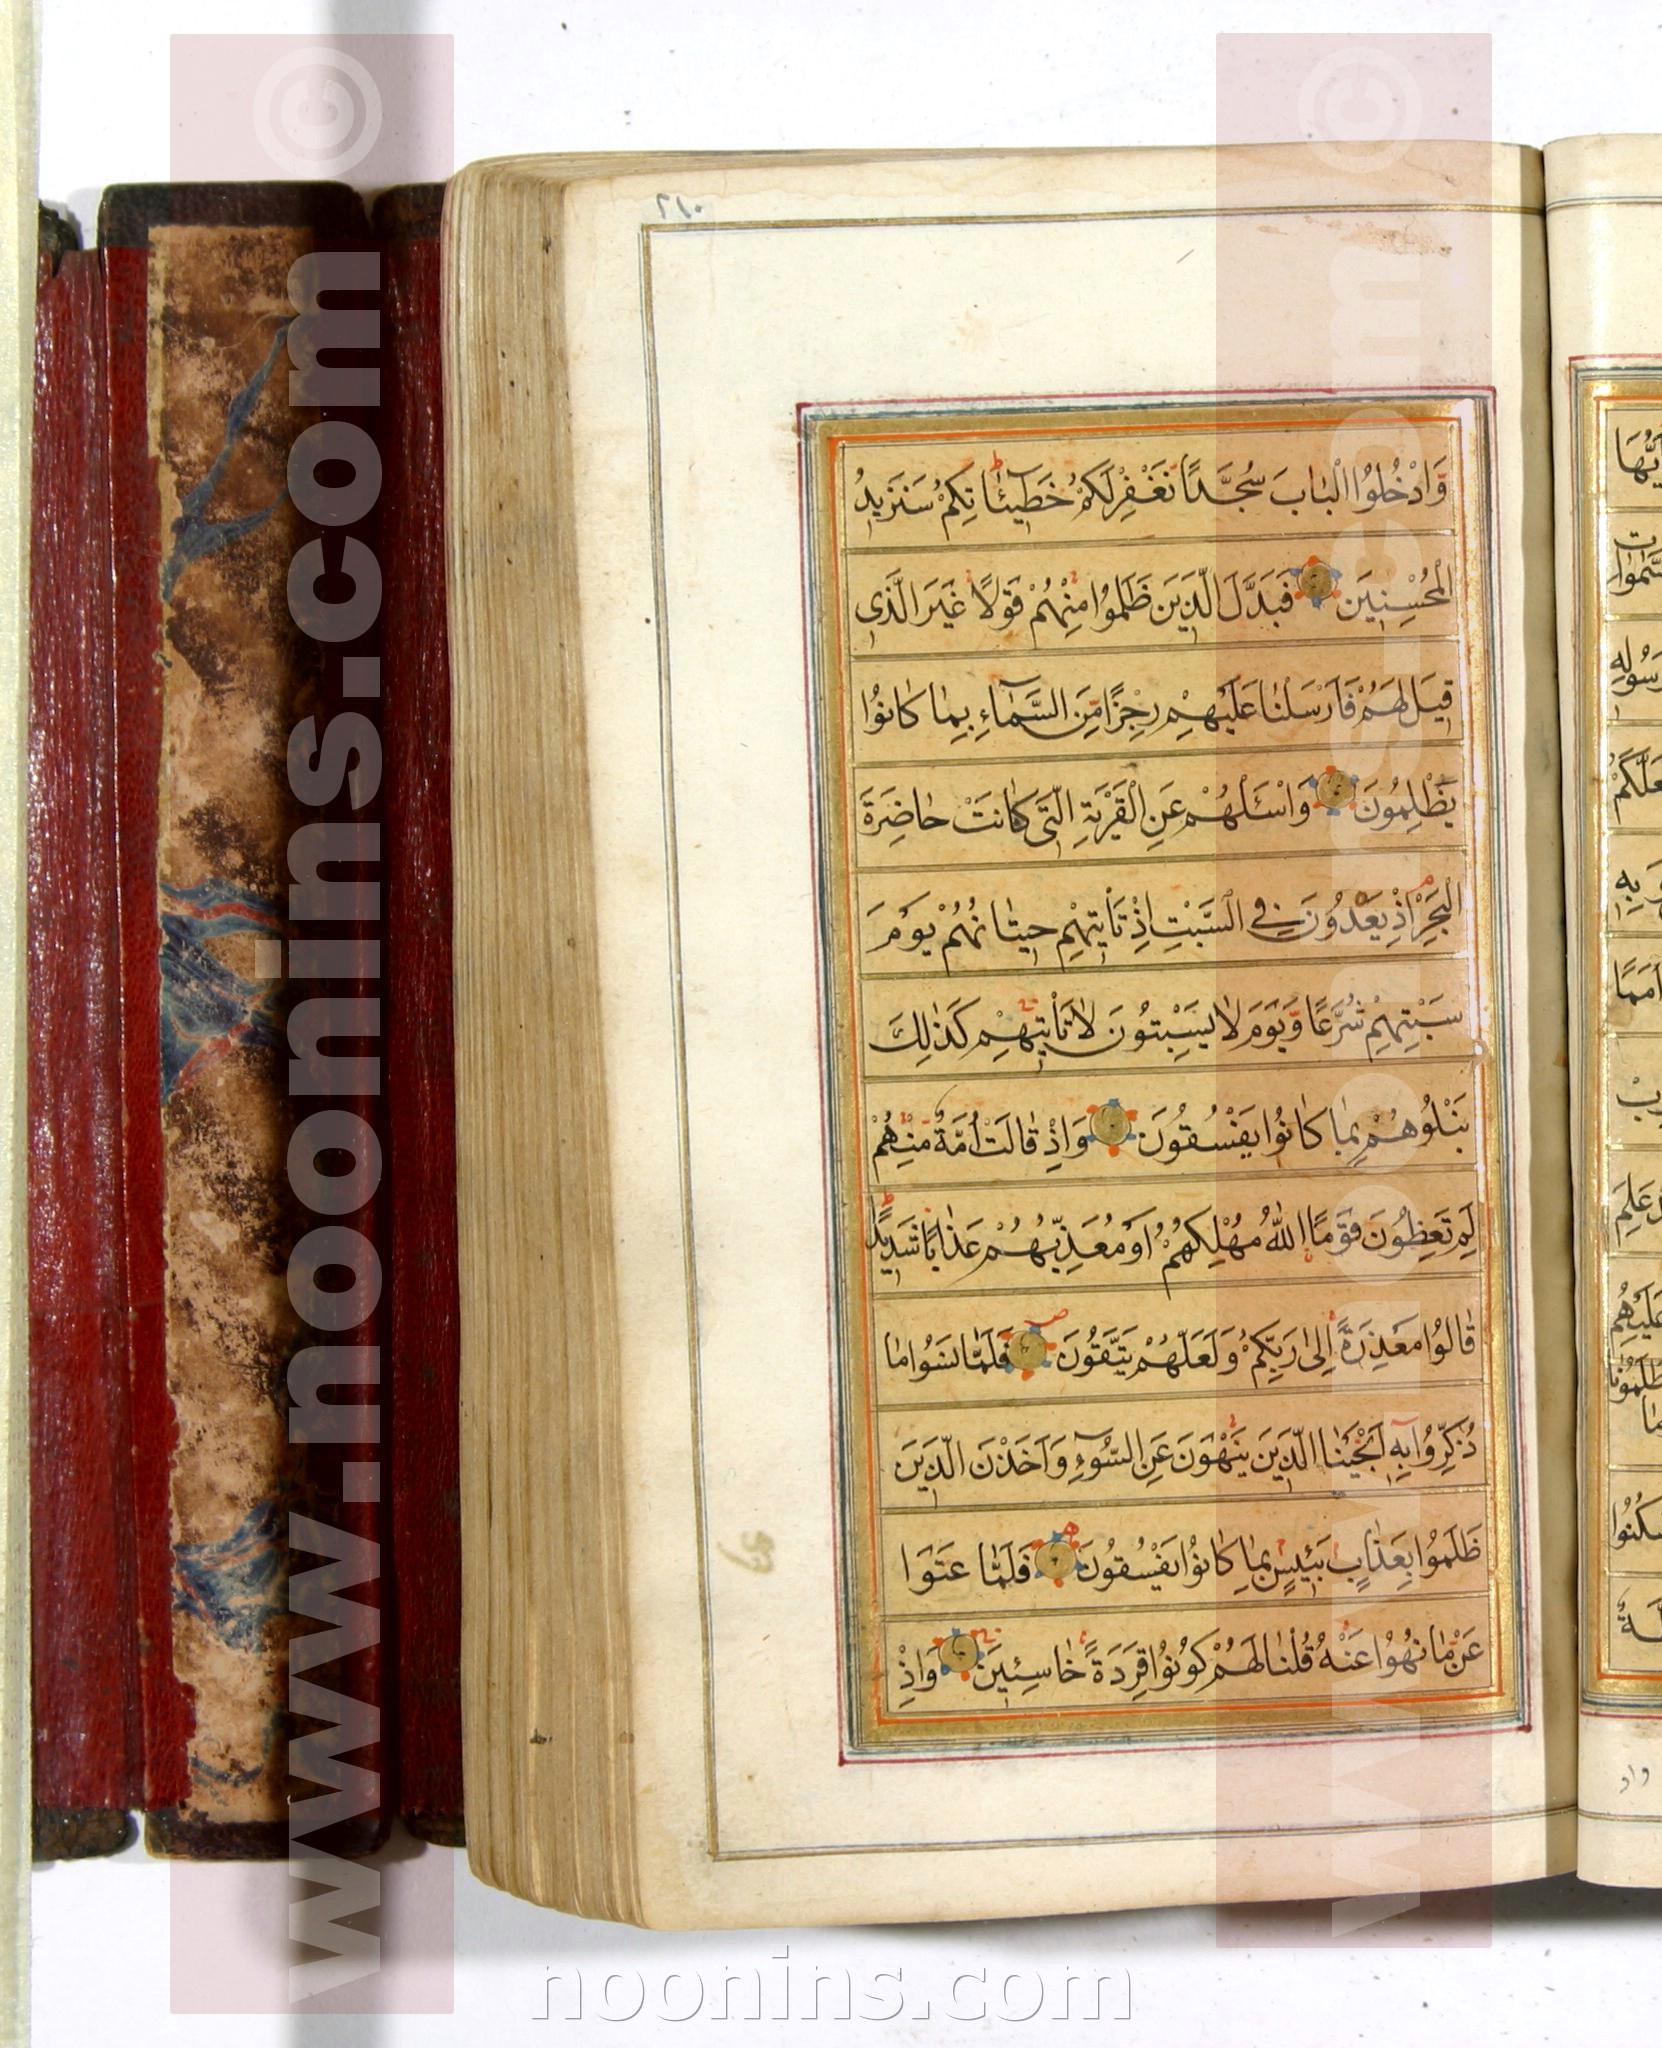 ٢١٠
وَادْخُلُوا الْبٰابَ سُجَّدًا نَغْفِرْ لَكُمْ خَطيٓئٰاتِكُمْ سَنَزيدُ
الْمُحْسِنينَ فَبَدَّلَ الَّذينَ ظَلَمُوا مِنْهُمْ قَوْلًا غَيْرَ الَّذى
قيلَ لَهُمْ فَاَرْسَلْنٰا عَلَيْهِمْ رِجْزًا مِنَ السَّمٰٓاءِ بِمٰا كٰانُوا
يَظْلِمُونَ وَاسْئَلْهُمْ عَنِ الْقَرْيَةِ الَّتى كٰانَتْ حٰاضِرَةَ
الْبَحْرِ اِذْ يَعْدُونَ فِى السَّبْتِ اِذْ تَأْتيهِمْ حيتٰانُهُمْ يَوْمَ
سَبْتِهِمْ شُرَّعًا وَيَوْمَ لٰا يَسْبِتُونَ لٰا تَأْتيهِمْ كَذٰلِكَ
نَبْلُوهُمْ بِمٰا كٰانُوا يَفْسُقُونَ وَاِذْ قٰالَتْ اُمَّةٌ مِنْهُمْ
لِمَ تَعِظُونَ قَوْمًا اللّٰهُ مُهْلِكُهُمْ اَوْ مُعَذِّبُهُمْ عَذٰابًا شَديدًا
قٰالُوا مَعْذِرَةً اِلىٰ رَبِّكُمْ وَلَعَلَّهُمْ يَتَّقُونَ فَلَمّٰا نَسُوا مٰا
ذُكِّرُوا بِهٓ اَنْجَيْنَا الَّذينَ يَنْهَوْنَ عَنِ السُّوٓءِ وَاَخَذْنَا الَّذينَ
ظَلَمُوا بِعَذٰابٍ بَئيسٍ بِمٰا كٰانُوا يَفْسُقُونَ فَلَمّٰا عَتَوْا
عَنْ مٰا نُهُوا عَنْهُ قُلْنٰا لَهُمْ كُونُوا قِرَدَةً خٰاسِئينَ وَاِذْ
واذ
www.noonins.com ©
www.noonins.com ©
noonins.com